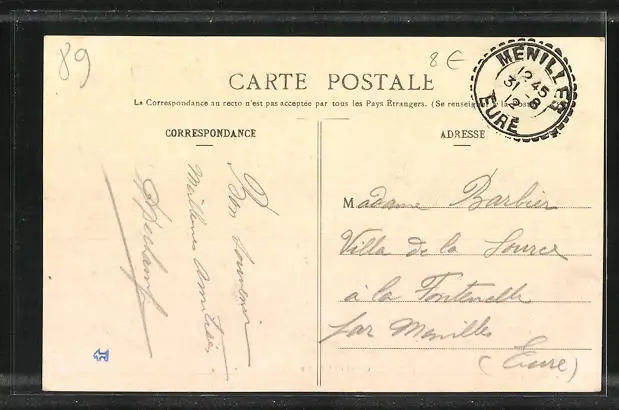 89
8 €
MENILLES
12 45
31 -8
EURE
CARTE POSTALE
La Correspondance au recto n'est pas acceptée par tous les Pays Étrangers. (Se renseigner à la Poste
CORRESPONDANCE
ADRESSE
Bon Souvenir
Meilleures Amitiés
Madame Barbier
Villa de la Source
à la Fontenelle
par Menilles
(Eure)